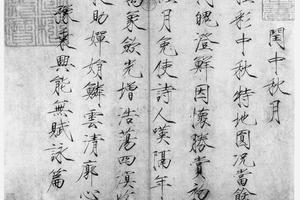 閏中秋月
桂彩中秋特地圓況當餘
魄澄鮮因懷勝賞初
月免使詩人嘆隔年
萬象斂光增浩蕩四溟
助嬋娟鱗雲清廓心
豫乘興能無賦詠篇